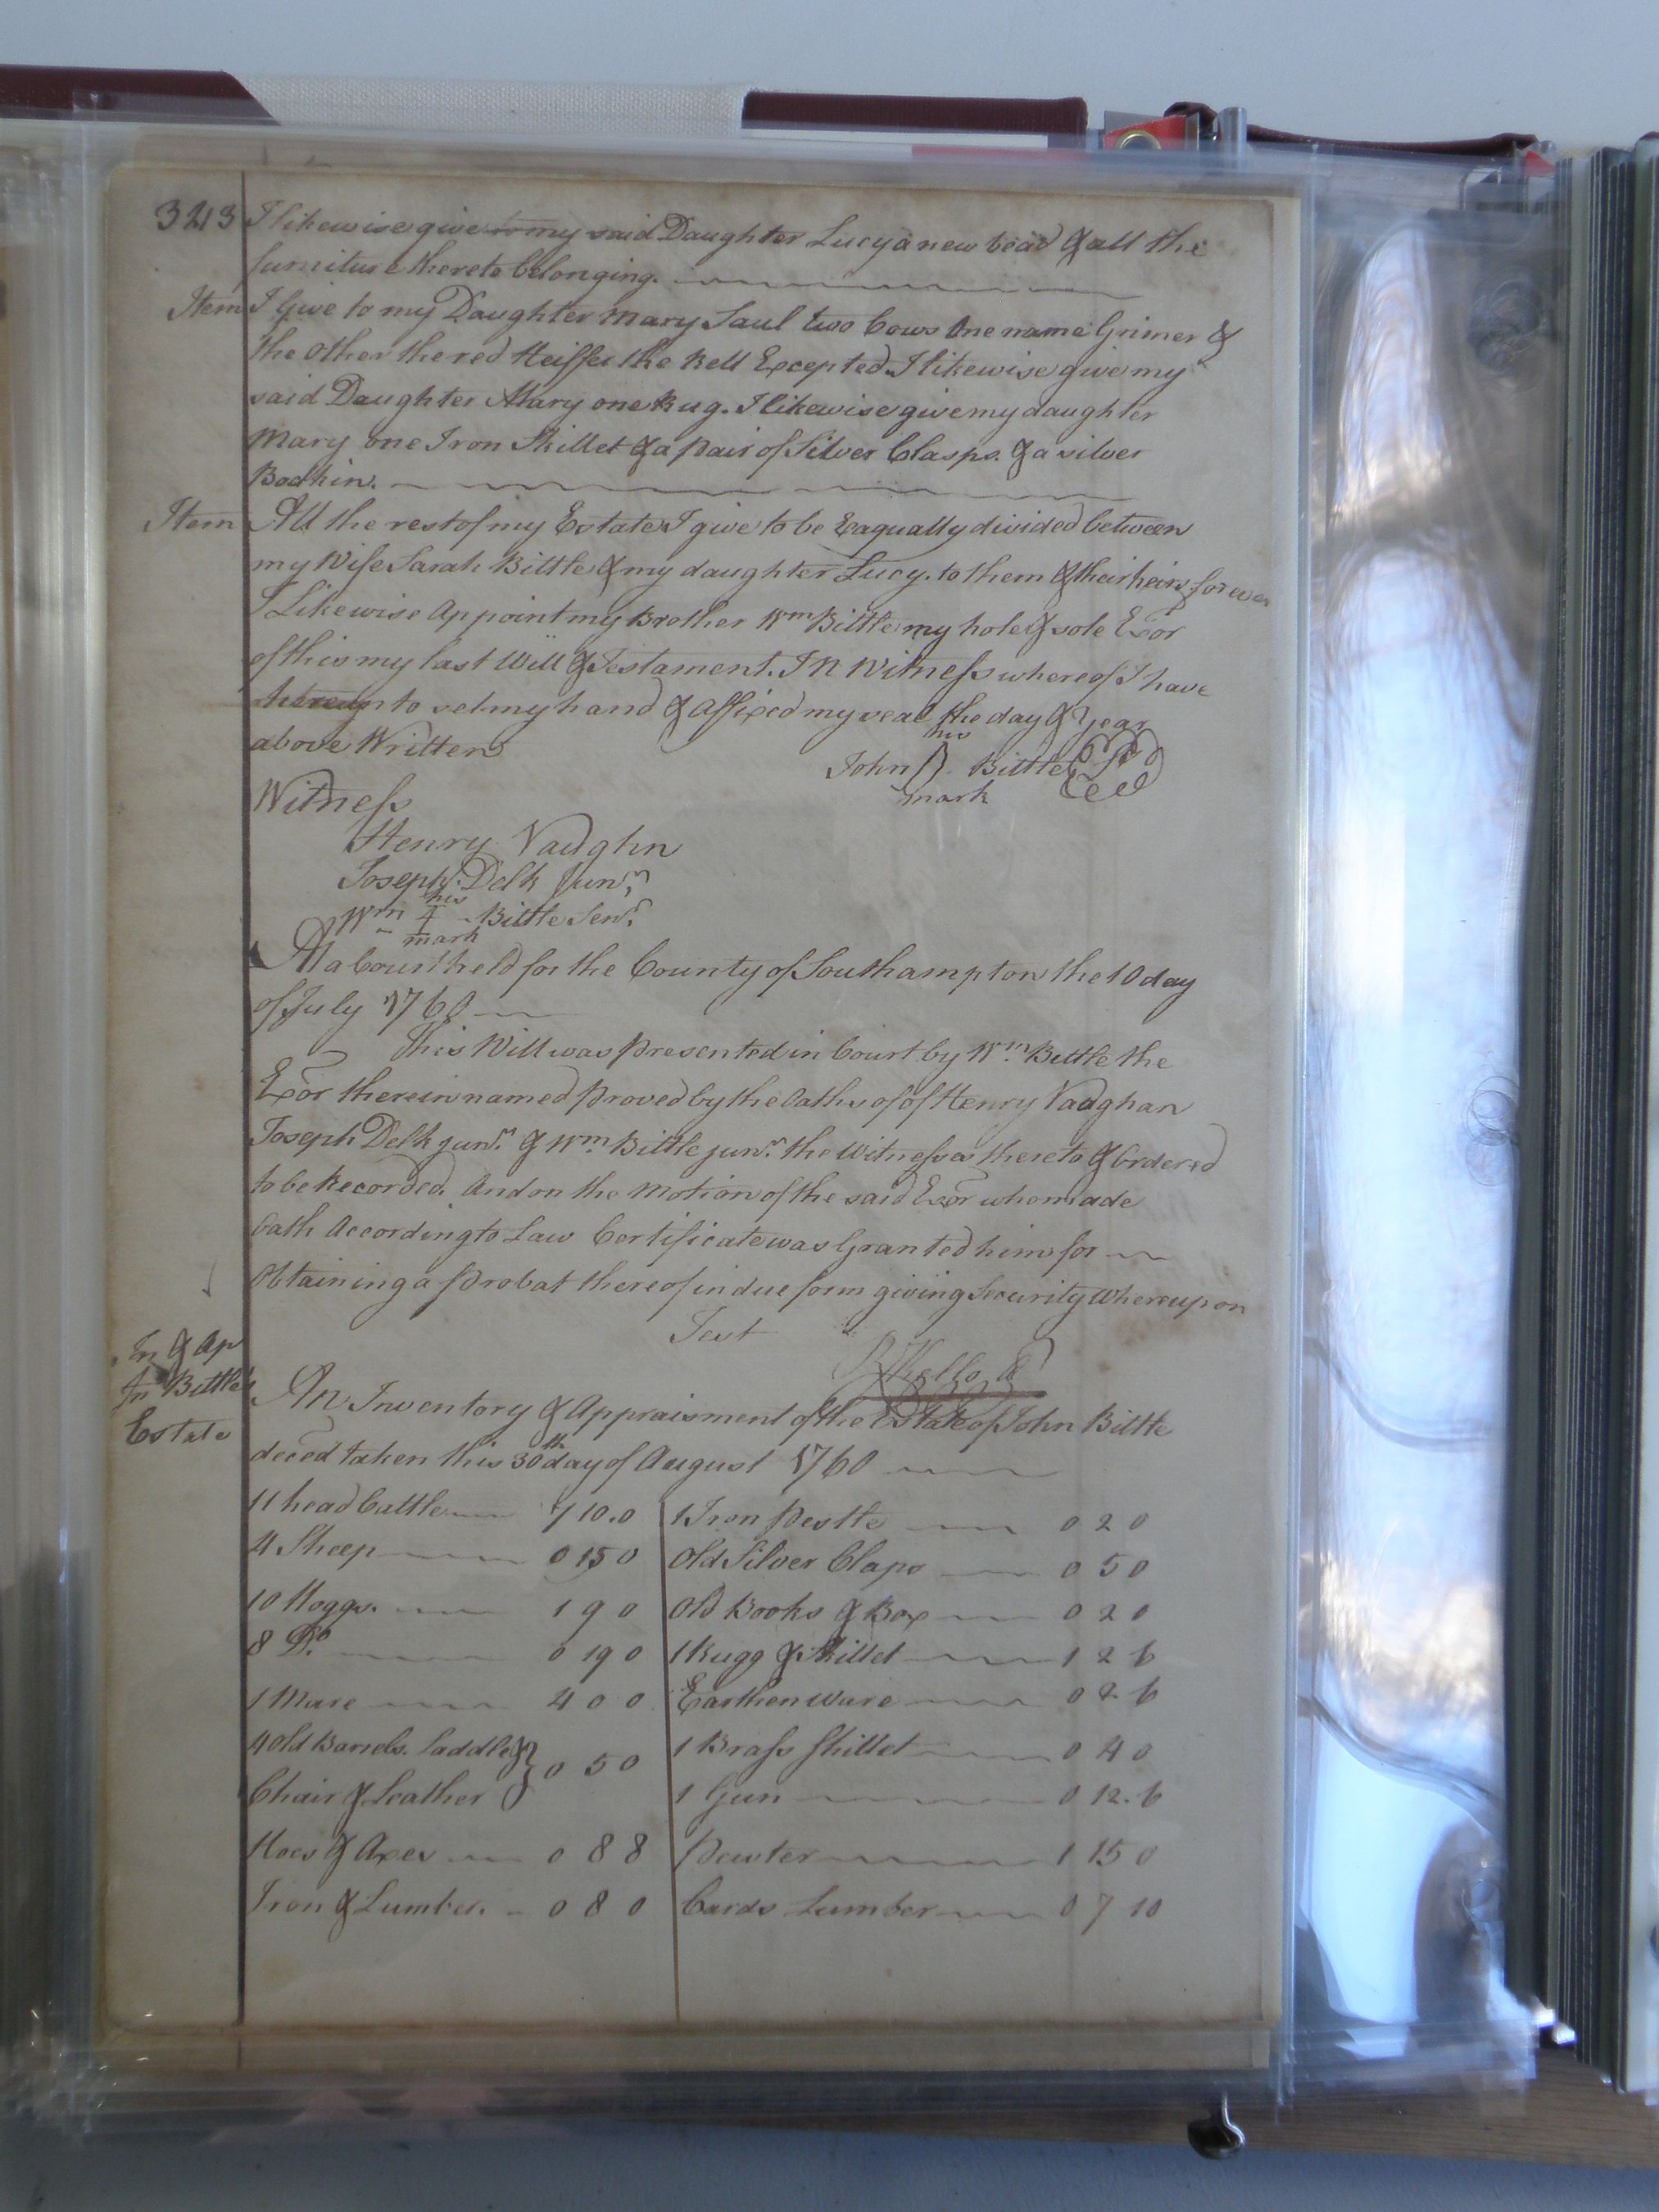 343 I likewise give to my said Daughter Lucy a new bead & all the
furniture thereto belonging.
Item I Give to my Daughter Mary Saul two Cows One name Grimer &
the Other the red Heiffer the Bell Excepted. I likewise give my
said Daughter Mary one Rug. I likewise give my daughter
Mary one Iron Skillet & a pair of Silver Clasps. & a silver
Bodkin.
Item All the rest of my Estate I give to be Eaqually divided between
my Wife Sarah Bittle & my daughter Lucy. to them & their heirs forever
I Likewise Appoint my Brother Wm Bittle my hole & sole Exor
of this my last Will & Testament. In Witness whereof I have
hereunto set my hand & Affixed my seal the day & Year
above Written
his
John Bittle
mark
Witness
Henry Vaughn
Joseph Delk Junr
his
Wm Bittle Senr
mark
At a Court held for the County of Southampton the 10 day
of July 1760
This Will was presented in Court by Wm Bittle the
Exor therein named proved by the Oaths of of Henry Vaughan
Joseph Delk junr & Wm Bittle junr the Witnesses thereto & Ordered
to be Recorded. And on the Motion of the said Exor who made
Oath According to Law Certificate was Granted him for
Obtaining a probat thereof in due form giving Security Whereupon
Test
In & Ap
Jn Bittles
Estate
An Inventory & Appraisment of the Estate of John Bittle
deced taken this 30th day of August 1760
11 head Cattle 7 10.0 1 Iron pestle 0 2 0
4 Sheep 0 15 0 Old Silver Claps 0 5 0
10 Hoggs. 1 9 0 Old Books & Box 0 2 0
8 Do 0 19 0 1 Rugg & Skillet 1 2 6
1 Mare 4 0 0 Earthen Ware 0 2. 6
4 old Barrels. Saddle & 0 5 0 1 Brass skillet 0 4 0
Chair & Leather 1 Gun 0 12. 6
Hoes & Axes 0 8 8 pewter 1 15 0
Iron & Lumber. 0 8 0 Cards Lumber 0 7 10